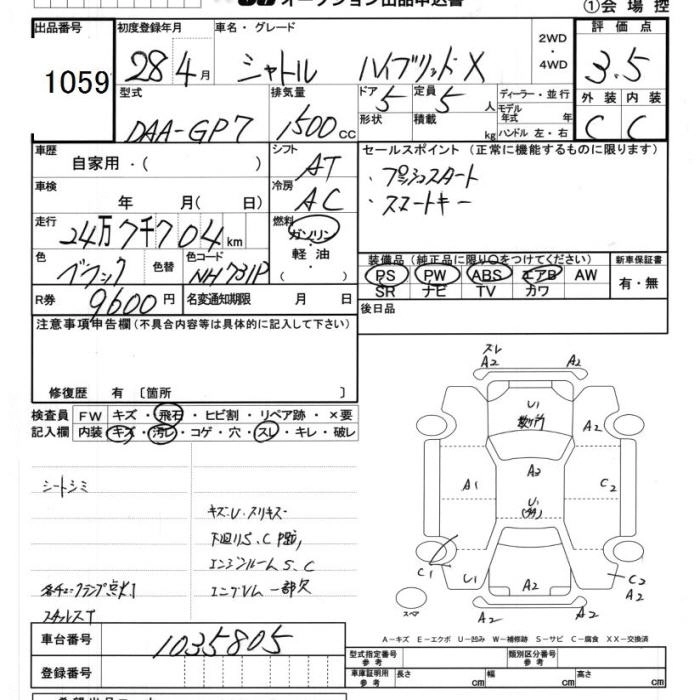 オークション出品申込書
①会場控
出品番号 初度登録年月 車名・グレード 2WD・4WD 評価点
1059 28年4月 シャトル ハイブリッドX 3.5
型式 排気量 ドア 5 定員 5人 ディーラー・並行 外装 内装
DAA-GP7 1500cc 形状 積載 kg モデル年式 年 ハンドル 左・右 C C
車歴 自家用・( ) シフト AT セールスポイント(正常に機能するものに限ります)
・プッシュスタート
・スマートキー
車検 年 月( 日) 冷房 AC
走行 24万7千704km 燃料 ガソリン・軽油・( )
装備品(純正品に限り○をつけてください) 新車保証書
色 色替 色コード NH731P
PS PW ABS エアB AW 有・無
SR ナビ TV カワ
R券 9600円 名変通知期限 月 日
後日品
注意事項申告欄(不具合内容等は具体的に記入して下さい)
修復歴 有 〔箇所 〕
検査員 FW キズ・飛石・ヒビ割・リペア跡・×要
記入欄 内装 キズ・汚レ・コゲ・穴・スレ・キレ・破レ
シートシミ
キズU.スリキズ
エンジンルームS、C
エンブレム一部欠
スレ
A2 A2
U1
A2
A2
A1 C2
U1
C1 U1 A2 C2
A2
A2 A2
スペア
A-キズ E-エクボ U-凹み W-補修跡 S-サビ C-腐食 XX-交換済
車台番号 1035805
型式指定番号 参考 類別区分番号 参考
登録番号
車庫証明用 参考 長さ cm 幅 cm 高さ cm